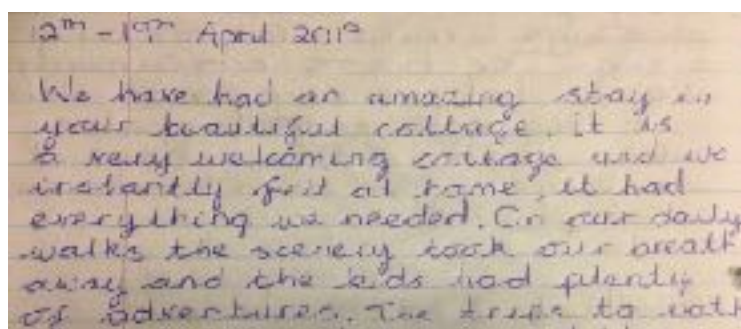 12th - 19th April 2019
We have had an amazing stay in
your beautiful cottage. it is
a very welcoming cottage and we
instantly felt at home, it had
everything we needed. On our daily
walks the scenery took our breath
away and the kids had plenty
of adventures. The trips to